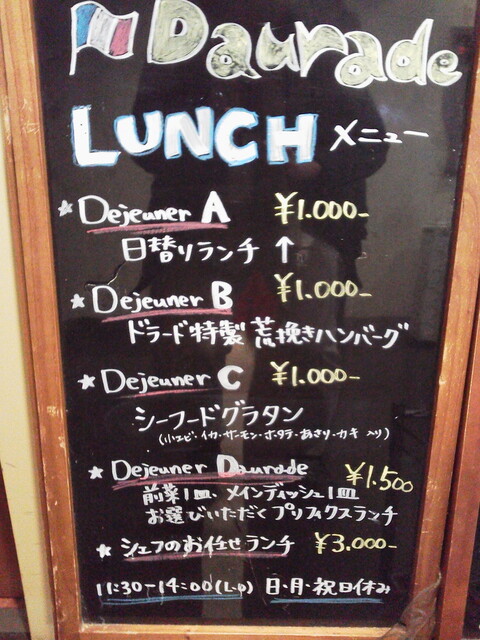 Daurade
LUNCH メニュー
★ Dejeuner A ¥1.000-
日替りランチ ↑
★ Dejeuner B ¥1.000-
ドラード特製 荒挽きハンバーグ
★ Dejeuner C ¥1.000-
シーフードグラタン
(小エビ・イカ・サーモン・ホタテ・あさり・カキ 入り)
★ Dejeuner Daurade ¥1.500
前菜1皿、メインディッシュ1皿
お選びいただくプリフィクスランチ
★ シェフのお任せランチ ¥3.000-
11:30-14:00(L.o) 日・月・祝日休み